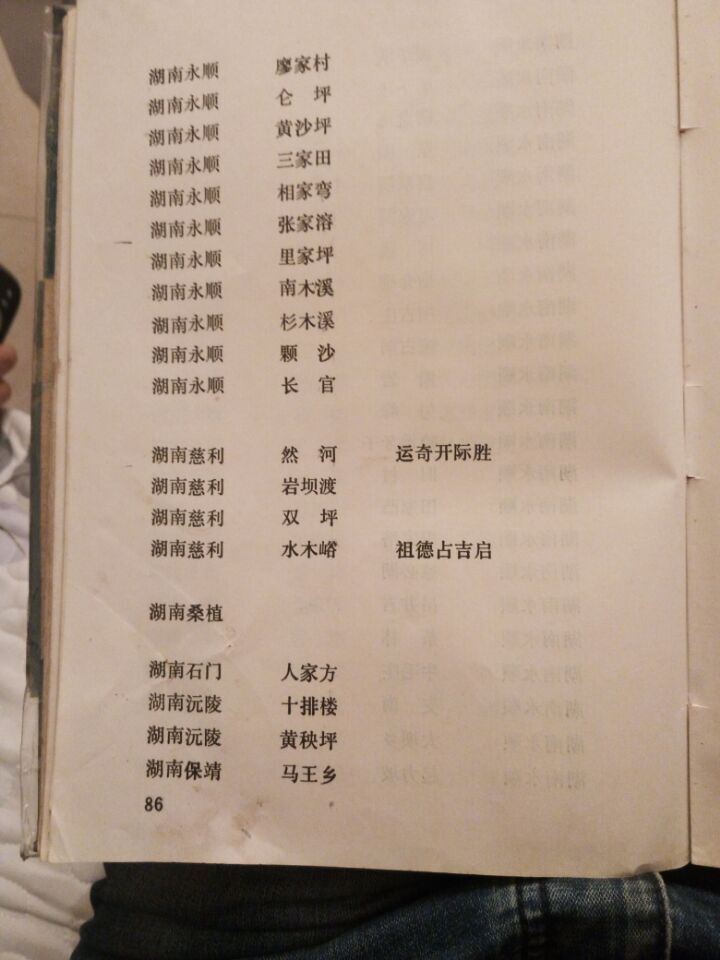 湖南永顺 廖家村
湖南永顺 仑 坪
湖南永顺 黄沙坪
湖南永顺 三家田
湖南永顺 相家弯
湖南永顺 张家溶
湖南永顺 里家坪
湖南永顺 南木溪
湖南永顺 杉木溪
湖南永顺 颗 沙
湖南永顺 长 官
湖南慈利 然 河 运奇开际胜
湖南慈利 岩坝渡
湖南慈利 双 坪
湖南慈利 水木峪 祖德占吉启
湖南桑植
湖南石门 人家方
湖南沅陵 十排楼
湖南沅陵 黄秧坪
湖南保靖 马王乡
86